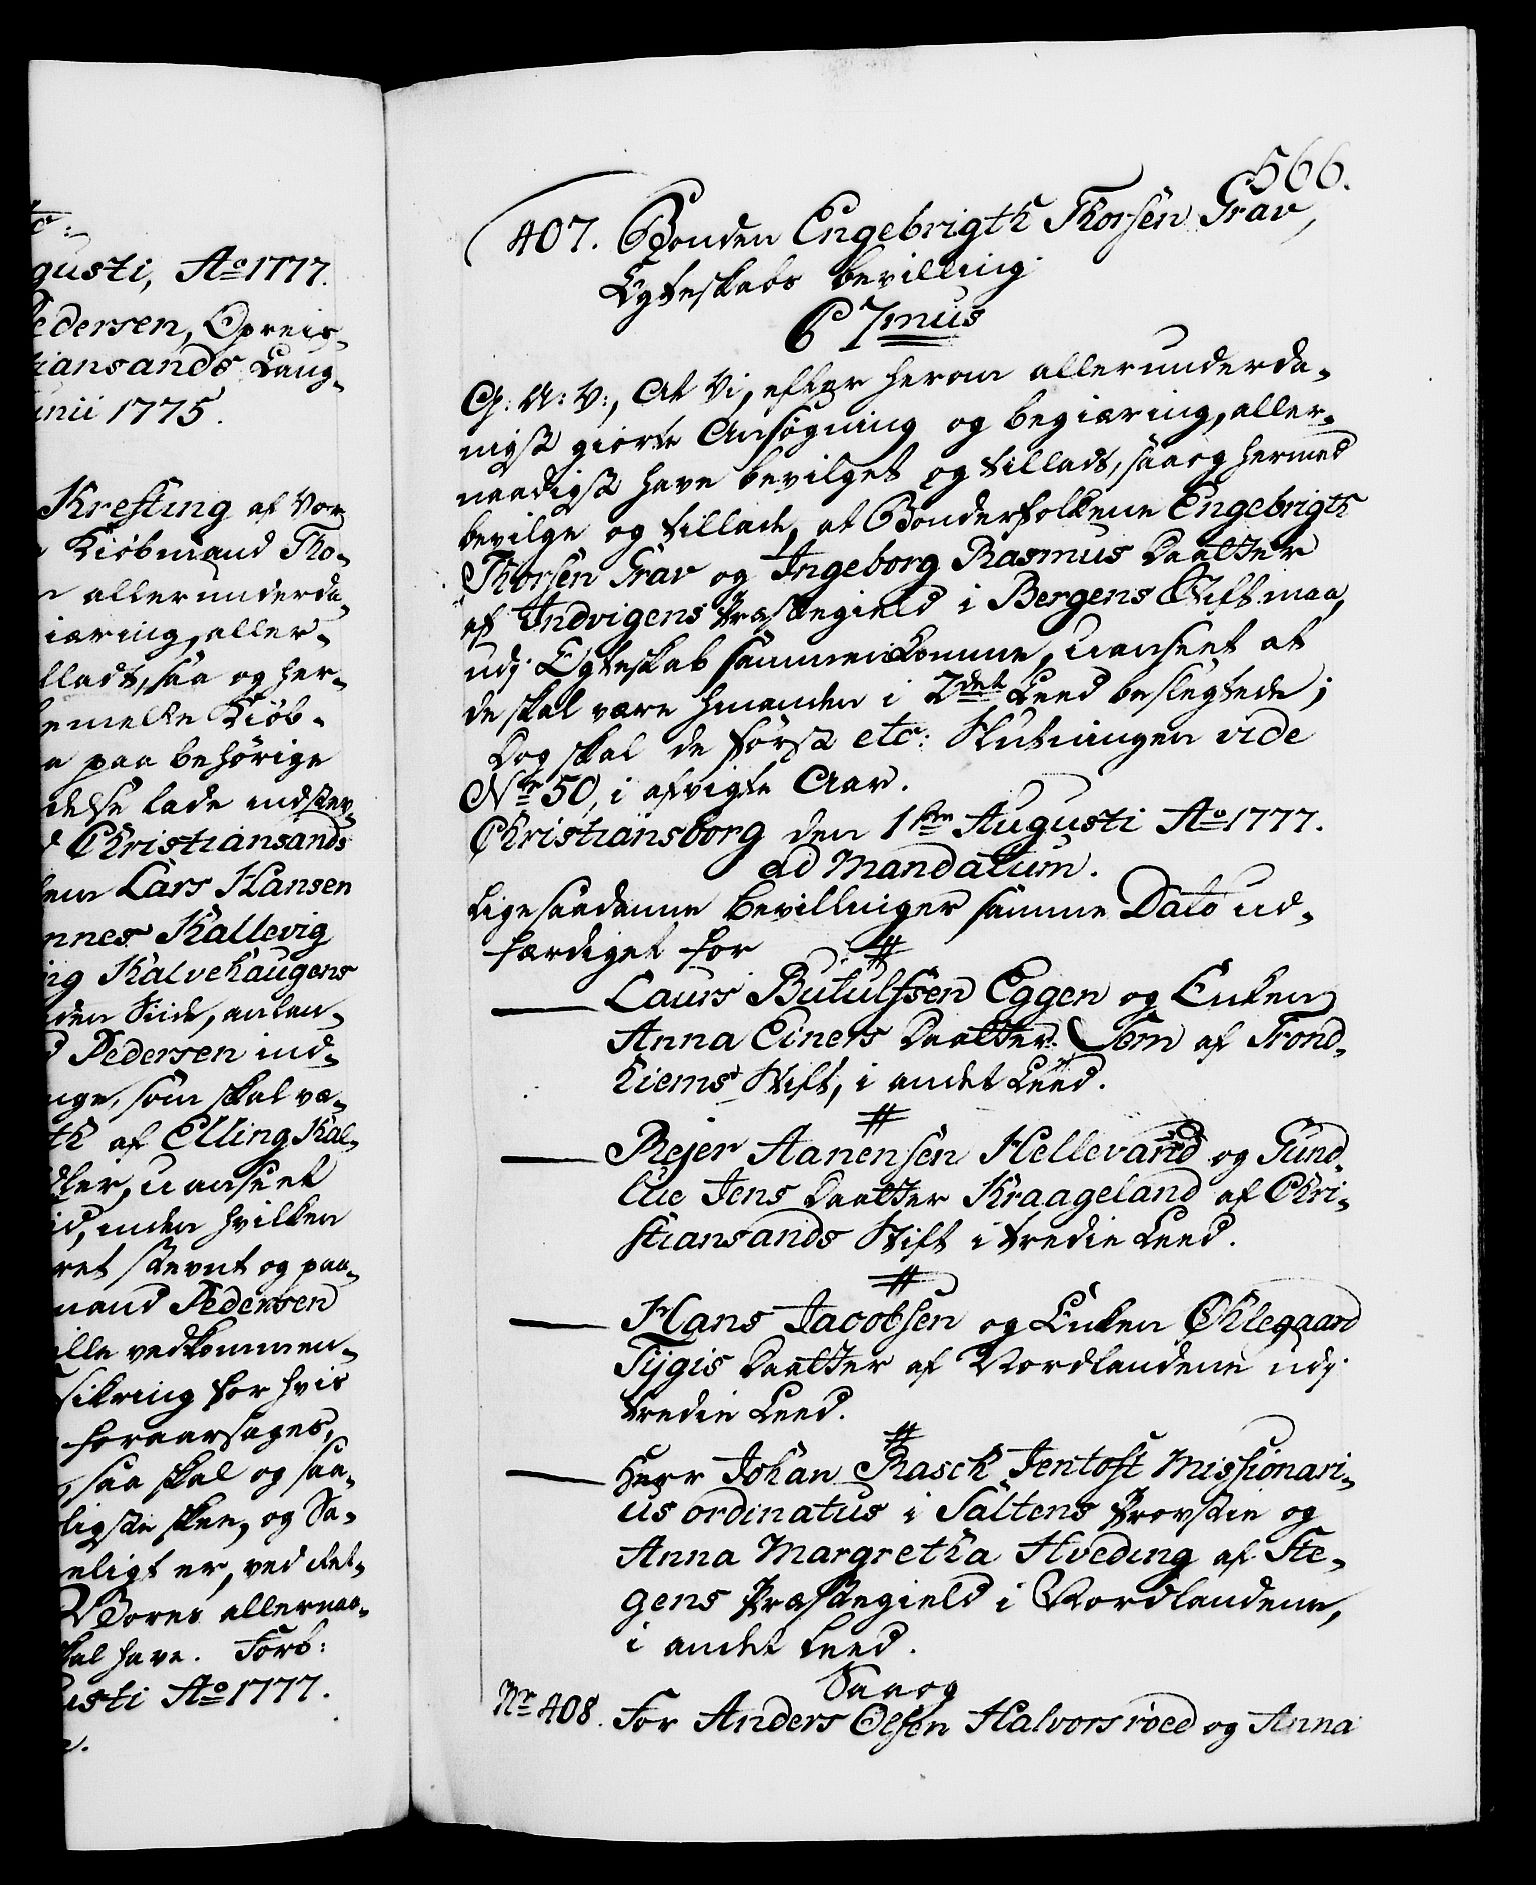 gusti, Ao 1777.
Pedersen, Opreis-
tiansands Laug-
unii 1775.
Krefting af Vor
Kiöbmand Tho-
allerunderda-
iæring, aller-
lladt, saa og her-
emelte Kiöb-
paa behörige
delse lade indstev-
Christiansands
Lars Hansen
nnes Kallevig
ig Kalvehaugens
den Siide, anlan-
Pedersen ind-
nge, som skal væ-
th af Elling Kal-
uanseet
inden hvilken
ret stevnt og paa-
mand Pedersen
alle vedkommen-
sikring for hvis
foraarsages,
saa skal og saa-
ligste skee, og Sa-
eligt er, ved det-
Vores allernaa-
skal have. Forb:
usti Ao 1777.
566.
407. Bonden Engebrigth Thorsen Grav,
Egteskabs bevilling.
C 7mus
G: A: V:, At Vi, efter herom allerunderda-
nigst giorte Ansögning og begiæring, aller-
naadigst have bevilget og tilladt, saa og hermed
bevilge og tillade, at Bonderfolkene Engebrigth
Thorsen Grav og Ingeborg Rasmus Daatter
af Indvigens Præstegield i Bergens Stift maa,
udj Egteskab sammenkomme, uanseet at
de skal være hinanden i 2det Leed beslegtede;
Dog skal de först etc: Slutningen vide
No 50, i afvigte Aar.
Christiansborg den 1ste Augusti Ao 1777.
ad Mandatum.
Ligesaadanne bevillinger samme Dato ud-
færdiget for #
Laurs Butulfsen Eggen og Enken
Anna Einers Daatter Tem af Trond-
hiems Stift, i andet Leed.
#
Rejer Aanensen Hellevand og Gund-
lue Jens Daatter Kraageland af Chri-
stiansands Stift i tredie Leed.
#
Hans Jacobsen og Enken Öhlegaard
Tÿgis Daatter af Nordlandene udj
tredie Leed.
#
Herr Johan Rasch Jentoft Missionari-
us ordinatus i Saltens Provstie og
Anna Margretha Hveding af Ste-
gens Præstegield i Nordlandene,
i andet Leed.
Saa og
Nr 408. For Anders Olsen Halvorsröed og Anna